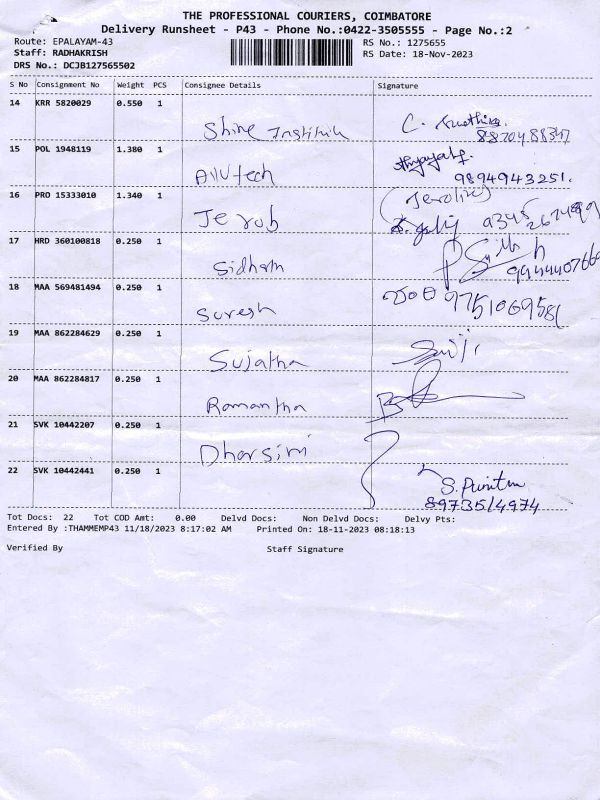 THE PROFESSIONAL COURIERS, COIMBATORE
Delivery Runsheet - P43 - Phone No.:0422-3505555 - Page No.:2
Route: EPALAYAM-43
RS No.: 1275655
Staff: RADHAKRISH
RS Date: 18-Nov-2023
DRS No.: DCJB127565502
S No Consignment No Weight PCS Consignee Details Signature
14 KRR 5820029 0.550 1
Shine Institute C.
15 POL 1948119 1.380 1
9894943251.
16 PRO 15333010 1.340 1
Jerob
17 HRD 360100818 0.250 1
Sidham
18 MAA 569481494 0.250 1
Suresh 9751069581
19 MAA 862284629 0.250 1
Sujatha
20 MAA 862284817 0.250 1
Ramantha
21 SVK 10442207 0.250 1
Dharsini
22 SVK 10442441 0.250 1
S.
8973514974
Tot Docs: 22 Tot COD Amt: 0.00 Delvd Docs: Non Delvd Docs: Delvy Pts:
Entered By :THAMMEMP43 11/18/2023 8:17:02 AM Printed On: 18-11-2023 08:18:13
Verified By Staff Signature